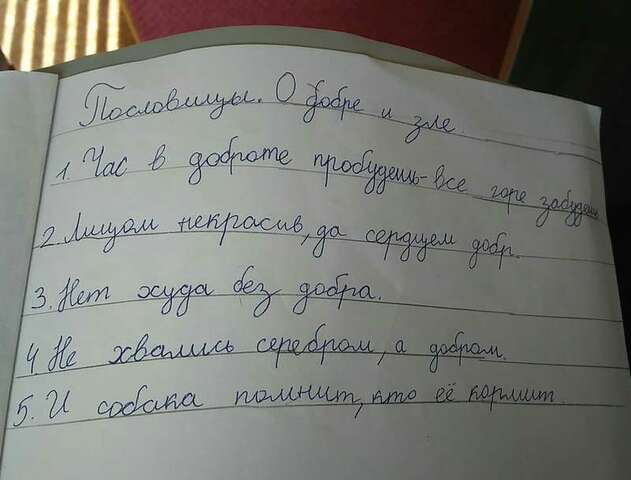 Пословицы. О добре и зле
1. Час в доброте пробудешь-все горе забудешь
2. Лицом некрасив, да сердцем добр.
3. Нет худа без добра.
4 Не хвались серебром, а добром.
5. И собака помнит, кто её кормит.